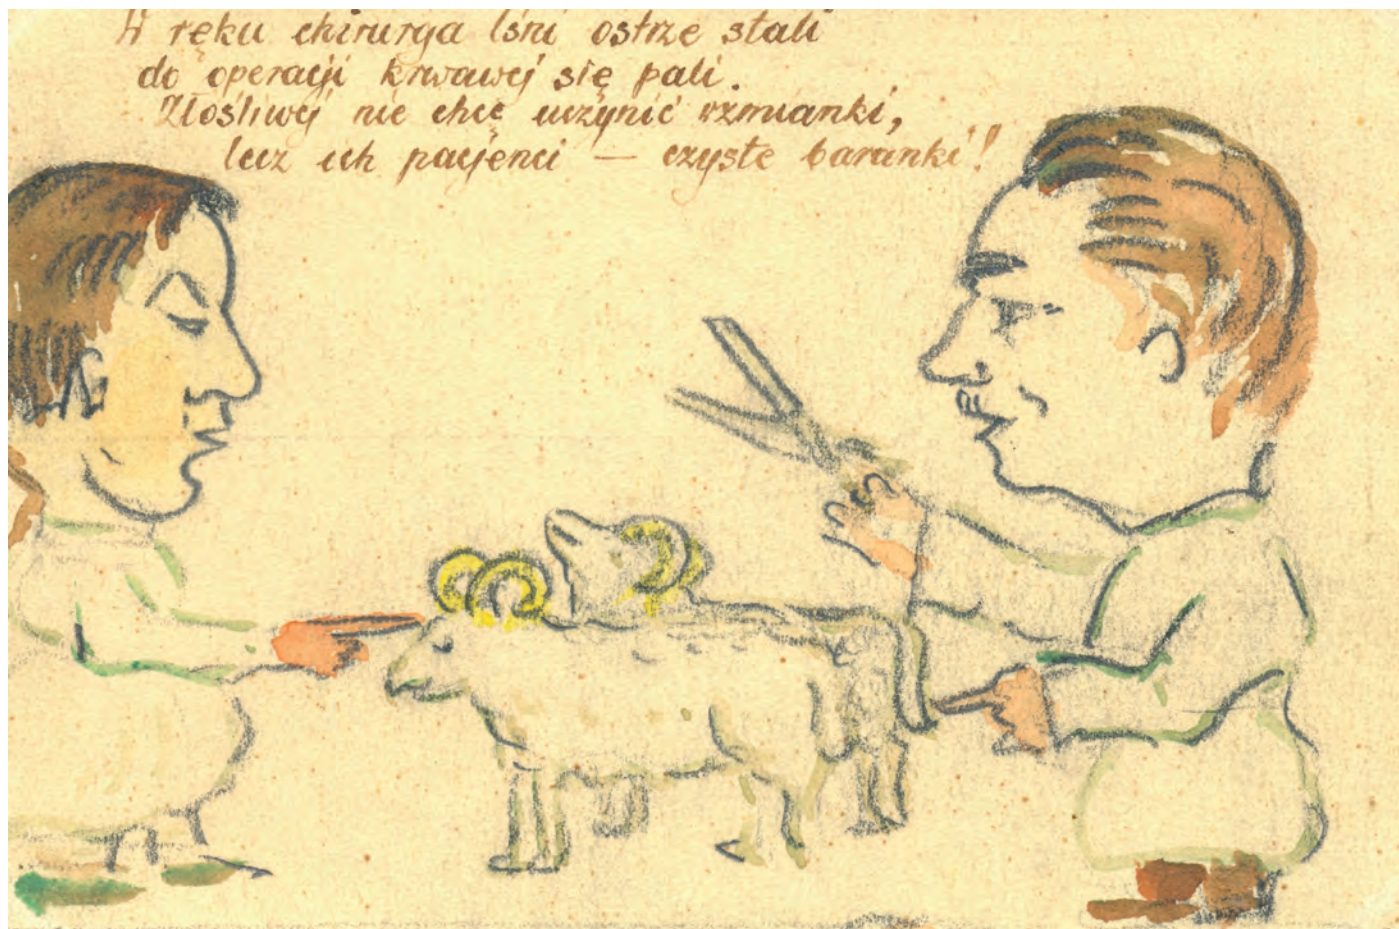 W ręku chirurga lśni ostrze stali
do operacji krwawej się pali.
Złośliwej nie chcę uczynić wzmianki,
lecz ich pacjenci — czyste baranki!